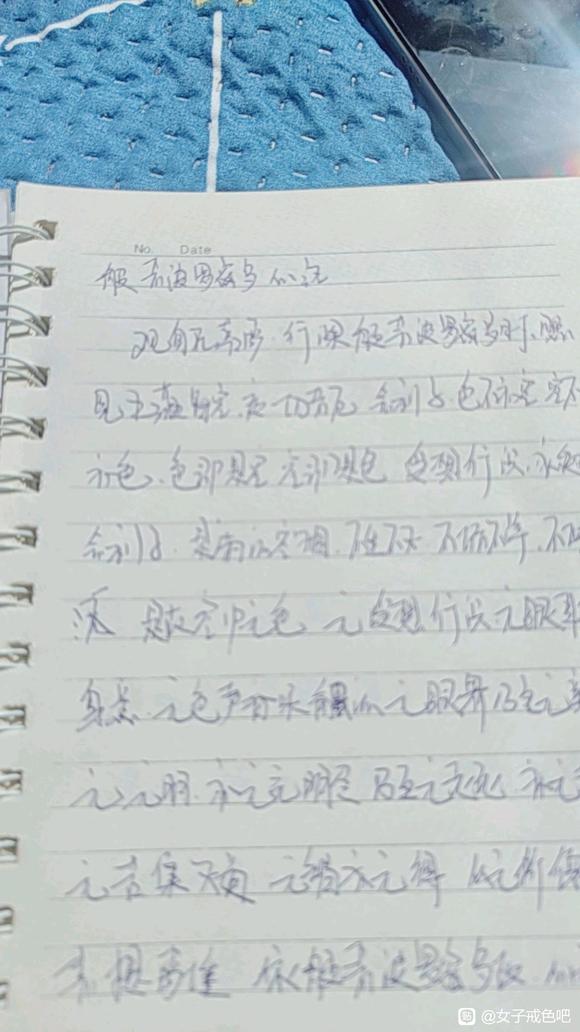 No. Date
般若波罗密多心经
观自在菩萨.行深般若波罗密多时.照
见五蕴皆空.度一切苦厄 舍利子 色不亦空 空不
亦色.色即是空 空即是色 受想行识.亦复
舍利子.是诸法空相.不生不灭 不垢不净.不
是故空中无色 无受想行识 无眼耳
身意.无色声香味触法 无眼界 乃至无意
无无明.亦无无明尽 乃至无老死.亦无
无苦集灭道 无智亦无得 以无所得
菩提萨埵 依般若波罗密多故.心
@女子戒色吧